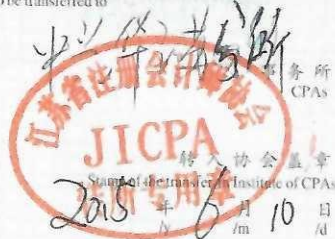 to be transferred to
事务所
CPAs
江苏省注册会计师协会
JICPA
转所专用章
转入协会盖章
Stamp of the transfer-in Institute of CPAs
2015年6月10日
/y /m /d